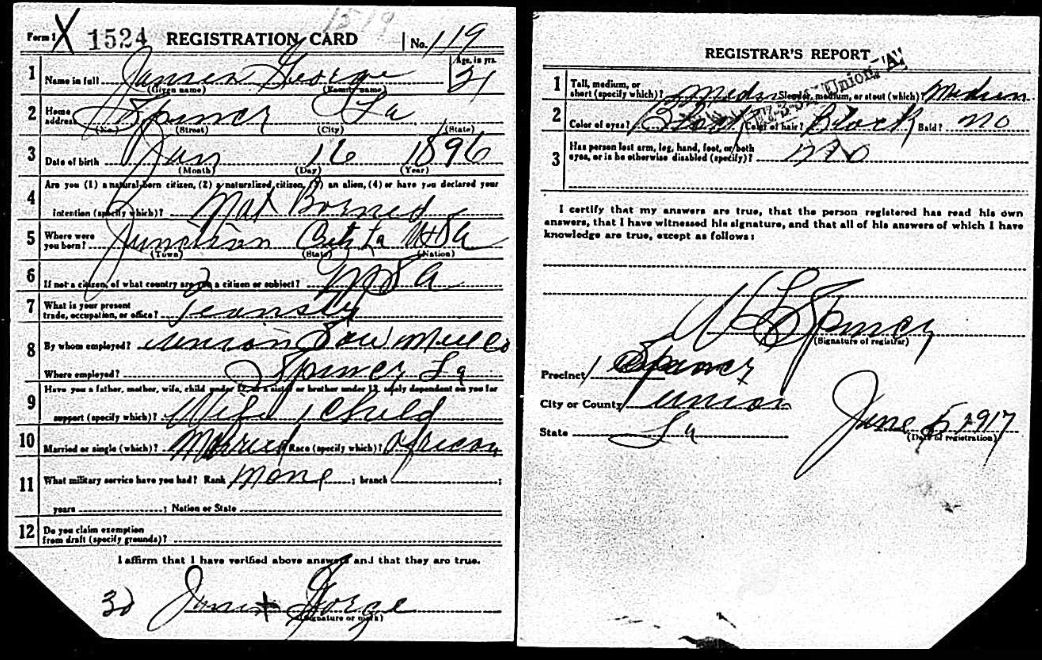 1519
Form 1 X 1524 REGISTRATION CARD No. 119
1 Name in full George Age, in yrs. 21
(Given name) (Family name)
2 Home address Spencer La
(No.) (Street) (City) (State)
3 Date of birth Jan 16 1896
(Month) (Day) (Year)
4 Are you (1) a natural-born citizen, (2) a naturalized citizen, (3) an alien, (4) or have you declared your
intention (specify which)? Nat Borned
5 Where were you born? Junction City La USA
(Town) (State) (Nation)
6 If not a citizen, of what country are you a citizen or subject? USA
7 What is your present trade, occupation, or office?
8 By whom employed? Union Saw Mill Co
Where employed? Spencer La
9 Have you a father, mother, wife, child under 12, or a sister or brother under 12, solely dependent on you for
support (specify which)? Wife 1 Child
10 Married or single (which)? Married Race (specify which)? African
11 What military service have you had? Rank None ; branch ;
years ; Nation or State
12 Do you claim exemption from draft (specify grounds)?
I affirm that I have verified above answers and that they are true.
(Signature or mark)
REGISTRAR'S REPORT
1 Tall, medium, or short (specify which)? Medium Slender, medium, or stout (which)? Medium
2 Color of eyes? Black Color of hair? Black Bald? No
3 Has person lost arm, leg, hand, foot, or both
eyes, or is he otherwise disabled (specify)? No
I certify that my answers are true, that the person registered has read his own
answers, that I have witnessed his signature, and that all of his answers of which I have
knowledge are true, except as follows:
(Signature of registrar)
Precinct 1 Spencer
City or County Union
State La
June 5 1917
(Date of registration)